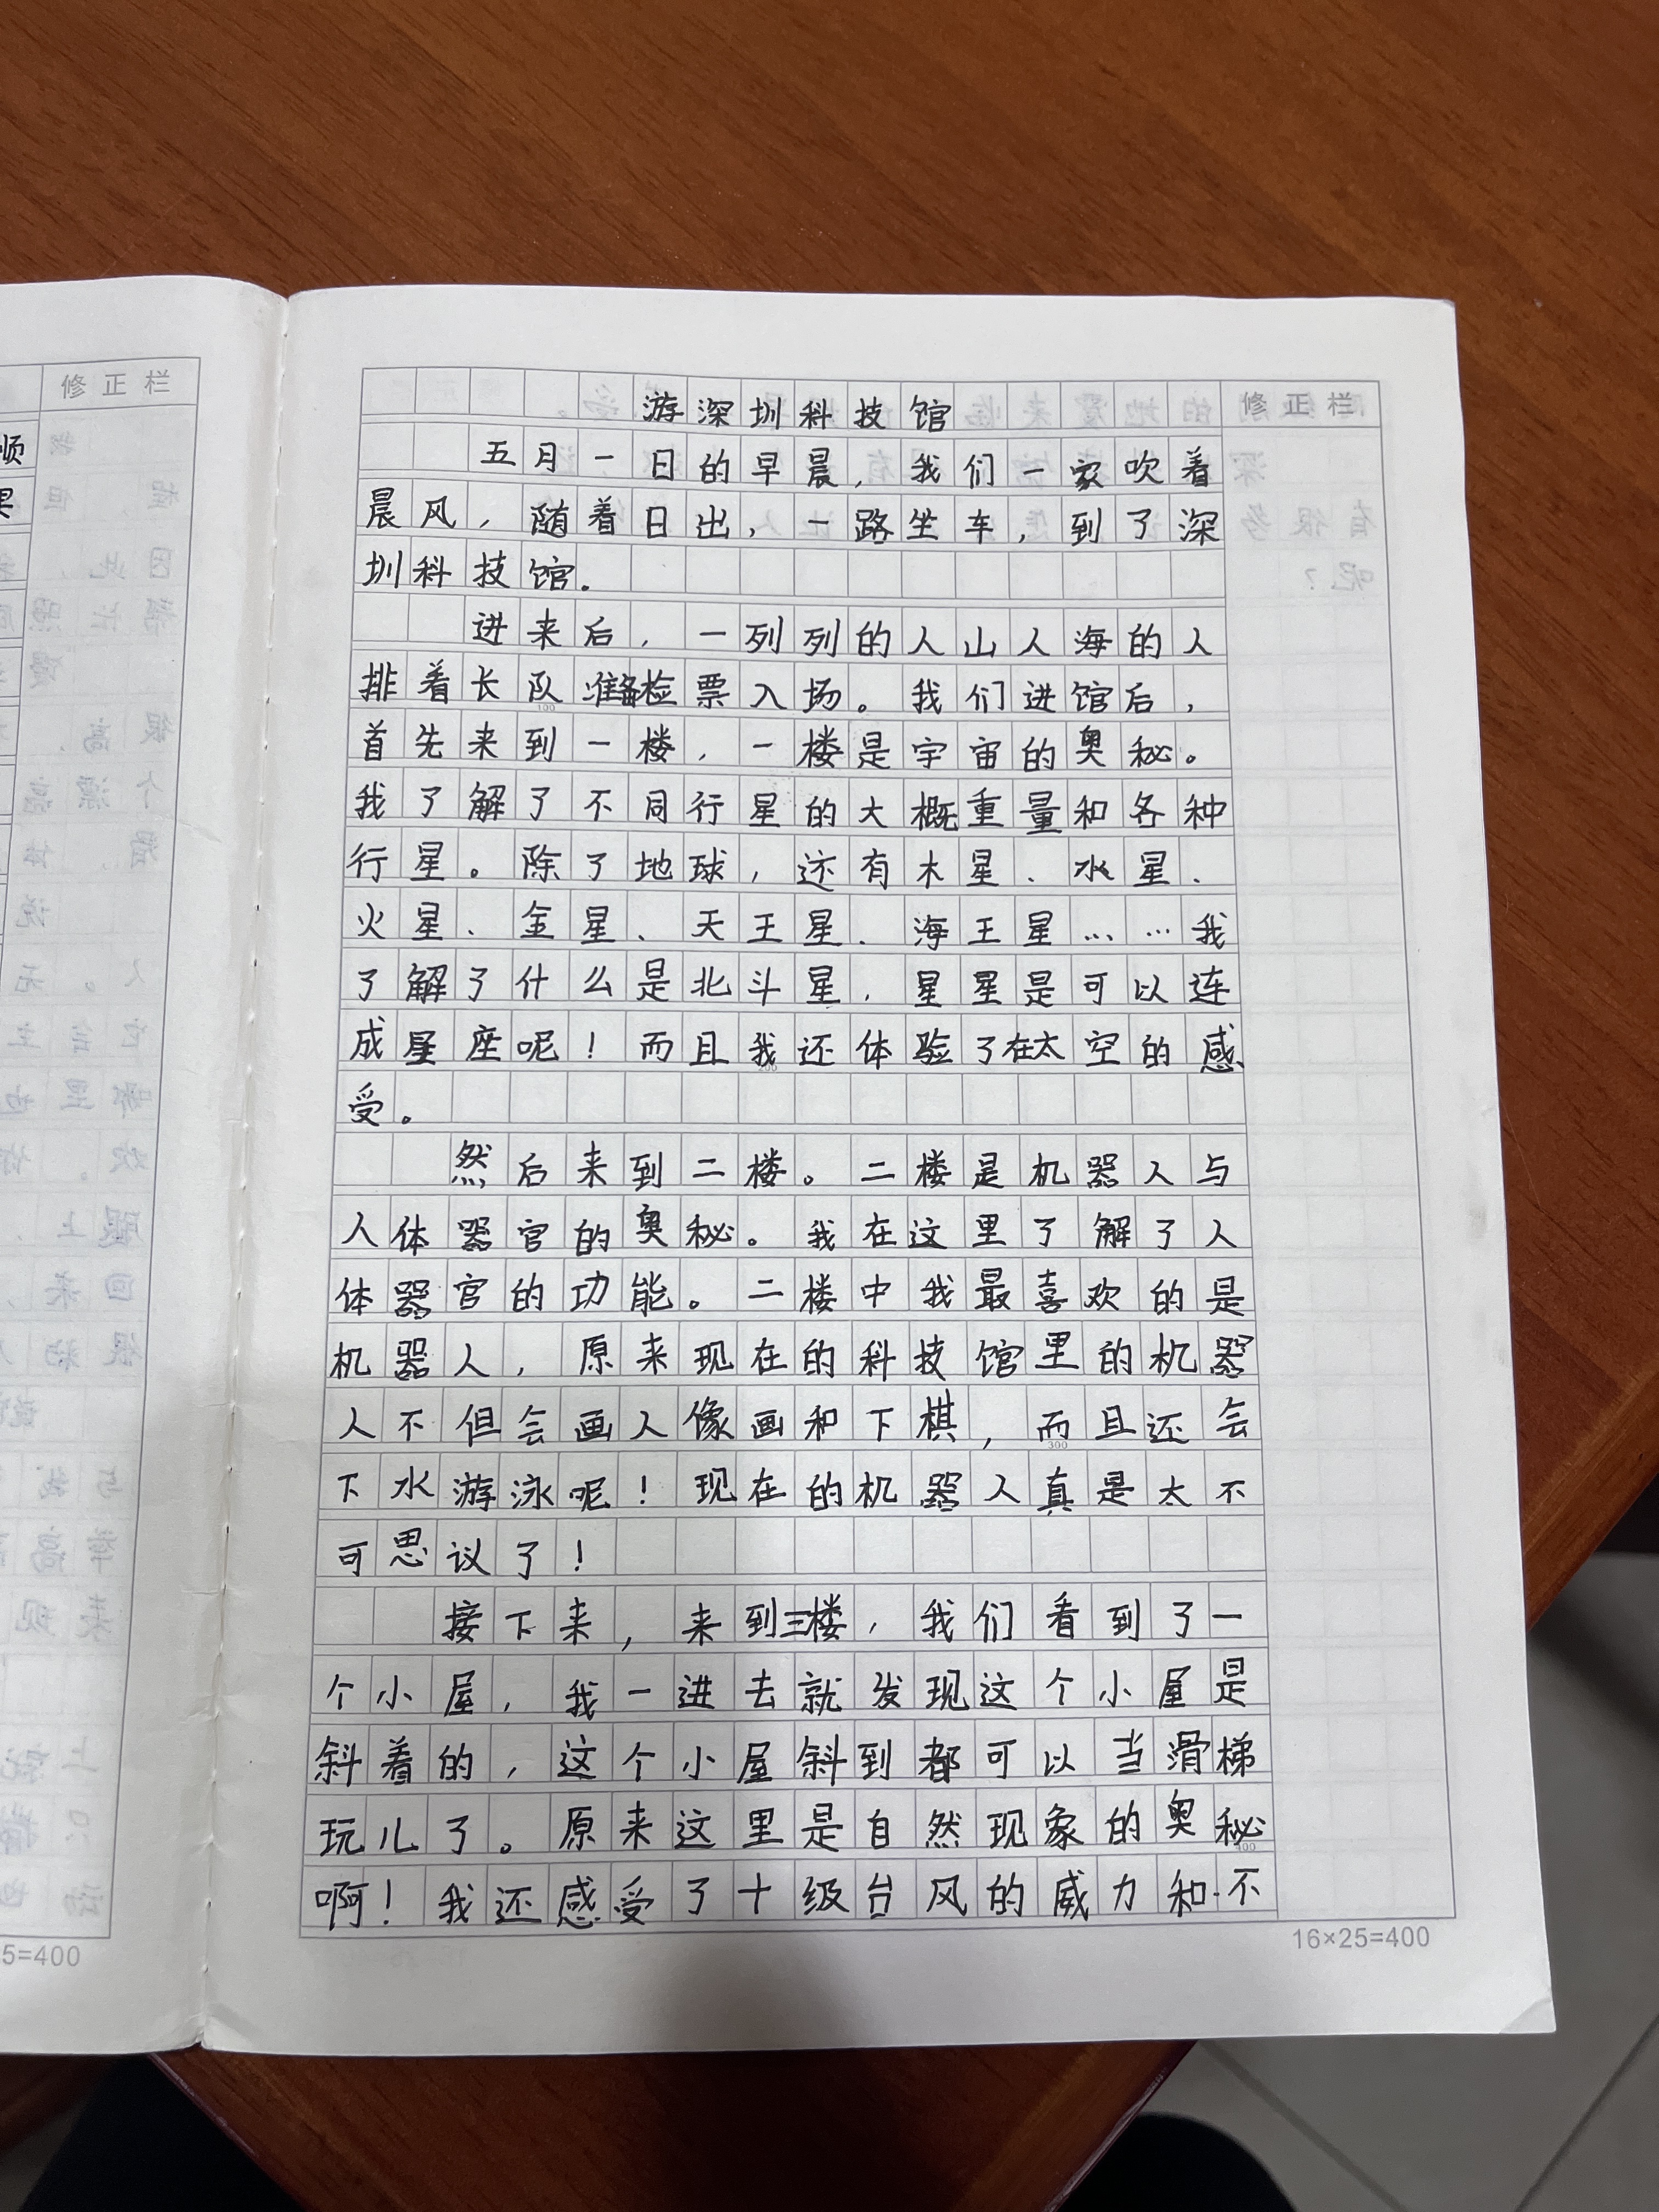 修正栏
游深圳科技馆
五月一日的早晨,我们一家吹着
晨风,随着日出,一路坐车,到了深
圳科技馆.
进来后,一列列的人山人海的人
排着长队准备检票入场。我们进馆后,
首先来到一楼,一楼是宇宙的奥秘。
我了解了不同行星的大概重量和各种
行星。除了地球,还有木星、水星、
火星、金星、天王星、海王星……我
了解了什么是北斗星,星星是可以连
成星座呢!而且我还体验了在太空的感
受。
然后来到二楼。二楼是机器人与
人体器官的奥秘。我在这里了解了人
体器官的功能。二楼中我最喜欢的是
机器人,原来现在的科技馆里的机器
人不但会画人像画和下棋,而且还会
下水游泳呢!现在的机器人真是太不
可思议了!
接下来,来到三楼,我们看到了一
个小屋,我一进去就发现这个小屋是
斜着的,这个小屋斜到都可以当滑梯
玩儿了。原来这里是自然现象的奥秘
啊!我还感受了十级台风的威力和不
修正栏
100
200
300
400
16×25=400
5=400